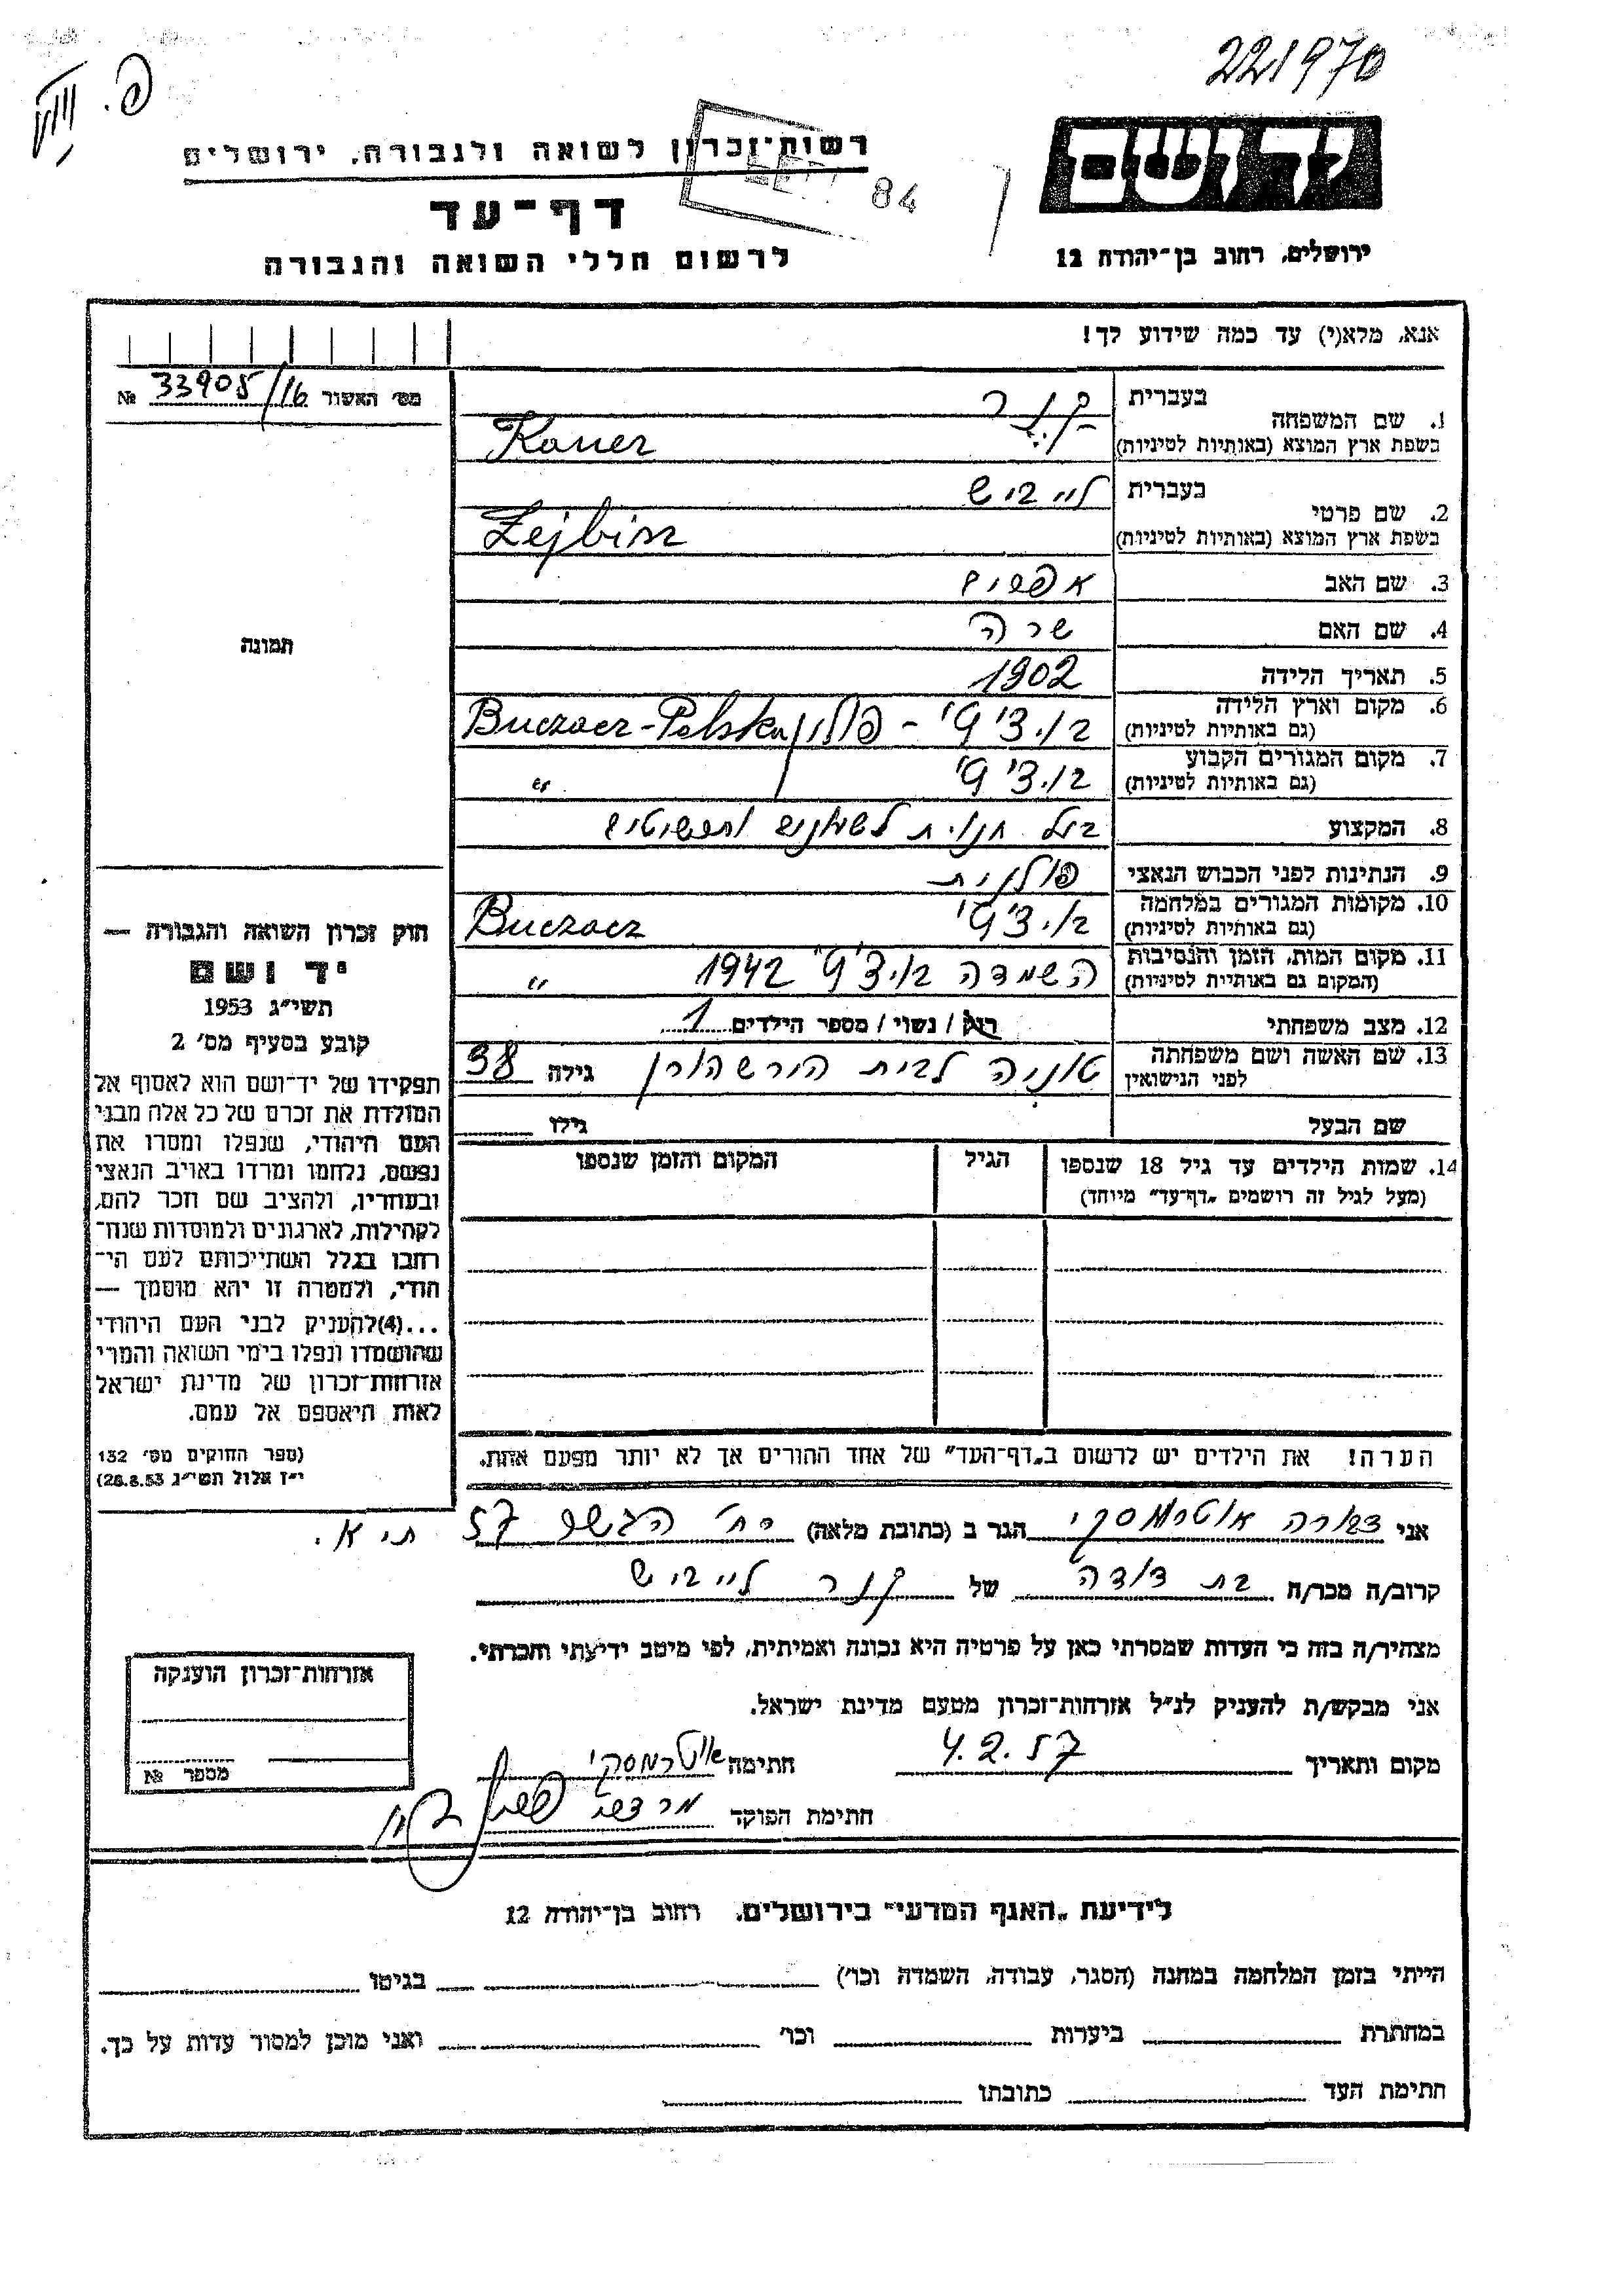 221970
יד ושם
ירושלים, רחוב בן־יהודה 12
רשות־זכרון לשואה ולגבורה, ירושלים
84
דף־עד
לרשום חללי השואה והגבורה
אנא, מלא(י) עד כמה שידוע לך!
מס׳ האשור 33905/16 №
1. שם המשפחה
בעברית קנר
בשפת ארץ המוצא (באותיות לטיניות) Kaner
2. שם פרטי
בעברית לייביש
בשפת ארץ המוצא (באותיות לטיניות) Lejbisz
3. שם האב אפרים
4. שם האם שרה
5. תאריך הלידה 1902
6. מקום וארץ הלידה בוצ׳ץ׳ - פולין Buczacz-Polska
(גם באותיות לטיניות)
7. מקום המגורים הקבוע בוצ׳ץ׳ "
(גם באותיות לטיניות)
8. המקצוע בעל חנות
9. הנתינות לפני הכבוש הנאצי פולנית
10. מקומות המגורים במלחמה בוצ׳ץ׳ Buczacz
(גם באותיות לטיניות)
11. מקום המות, הזמן והנסיבות השמדה בוצ׳ץ׳ 1942 "
(המקום גם באותיית לטיניות)
12. מצב משפחתי רוק / נשוי / מספר הילדים 1
13. שם האשה ושם משפחתה טוניה לבית הירשהורן גילה 38
לפני הנישואין
שם הבעל גילו
14. שמות הילדים עד גיל 18 שנספו הגיל המקום והזמן שנספו
(מעל לגיל זה רושמים „דף־עד״ מיוחד)
הערה! את הילדים יש לרשום ב„דף־העד״ של אחד ההורים אך לא יותר מפעם אחת.
תמונה
חוק זכרון השואה והגבורה —
יד ושם
תשי״ג 1953
קובע בסעיף מס׳ 2
תפקידו של יד־ושם הוא לאסוף אל
המולדת את זכרם של כל אלה מבני
העם היהודי, שנפלו ומסרו את
נפשם, נלחמו ומרדו באויב הנאצי
ובעוזריו, ולהציב שם וזכר להם,
לקהילות, לארגונים ולמוסדות שנח־
רבו בגלל השתייכותם לעם הי־
הודי, ולמטרה זו יהא מוסמך —
...(4)להעניק לבני העם היהודי
שהושמדו ונפלו בימי השואה והמרי
אזרחות־זכרון של מדינת ישראל
לאות היאספם אל עמם.
(ספר החוקים מס׳ 132
י״ז אלול תשי״ג 28.8.53)
אני אוטרמסקי הגר ב (כתובת מלאה) רח׳ 57 ת״א.
קרוב/ה מכר/ה בת דודה של קנר לייביש
מצהיר/ה בזה כי העדות שמסרתי כאן על פרטיה היא נכונה ואמיתית, לפי מיטב ידיעתי והכרתי.
אני מבקש/ת להעניק לנ״ל אזרחות־זכרון מטעם מדינת ישראל.
מקום ותאריך 4.2.57 חתימה אוטרמסקי
חתימת הפוקד מרדכי
אזרחות־זכרון הוענקה
מספר №
לידיעת „האגף המדעי״ בירושלים, רחוב בן־יהודה 12
הייתי בזמן המלחמה במחנה (הסגר, עבודה, השמדה וכו׳) בגיטו
במחתרת ביערות וכו׳ ואני מוכן למסור עדות על כך.
חתימת העד כתובתו